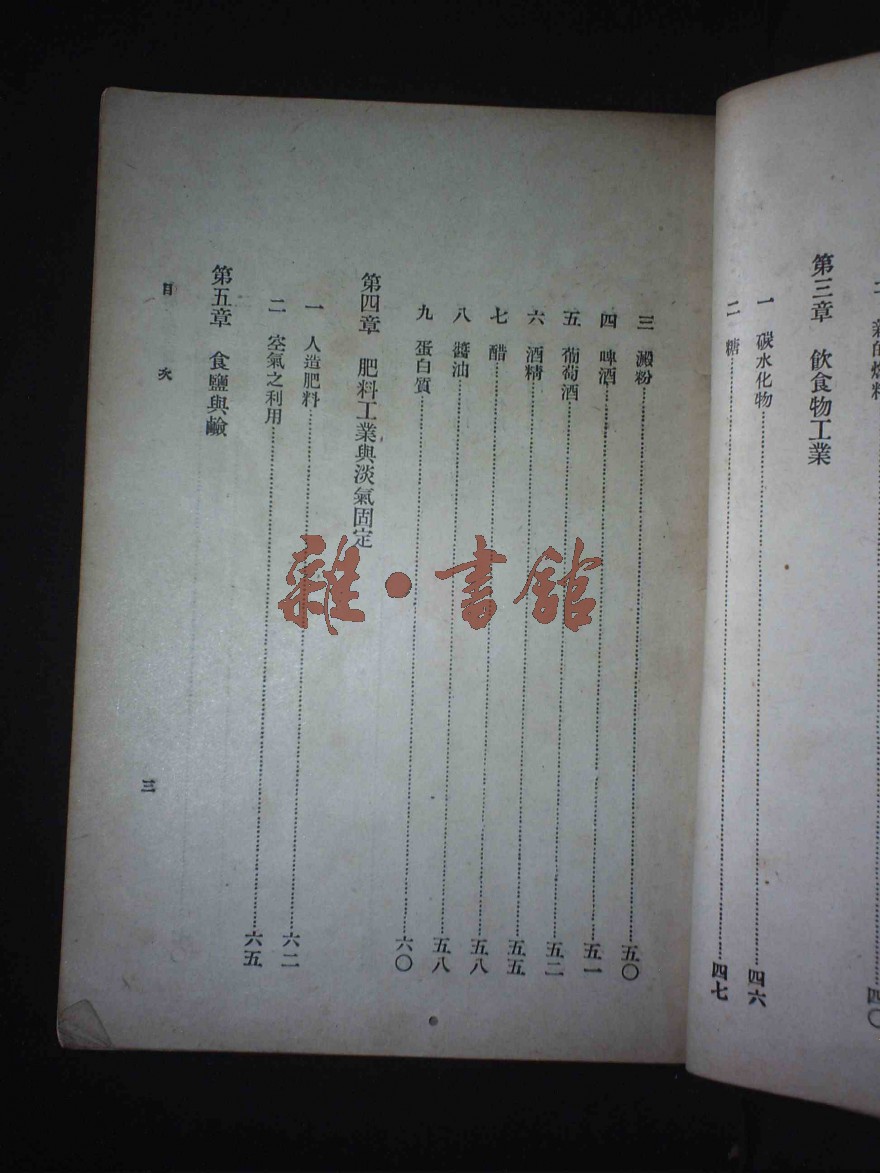 四〇
第三章　飲食物工業
一　碳水化物……四六
二　糖……四七
三　澱粉……五〇
四　啤酒……五一
五　葡萄酒……五二
六　酒精……五五
七　醋……五八
八　醬油……五八
九　蛋白質……六〇
第四章　肥料工業與淡氣固定
一　人造肥料……六二
二　空氣之利用……六五
第五章　食鹽與鹼
目　次
三
雜·書館